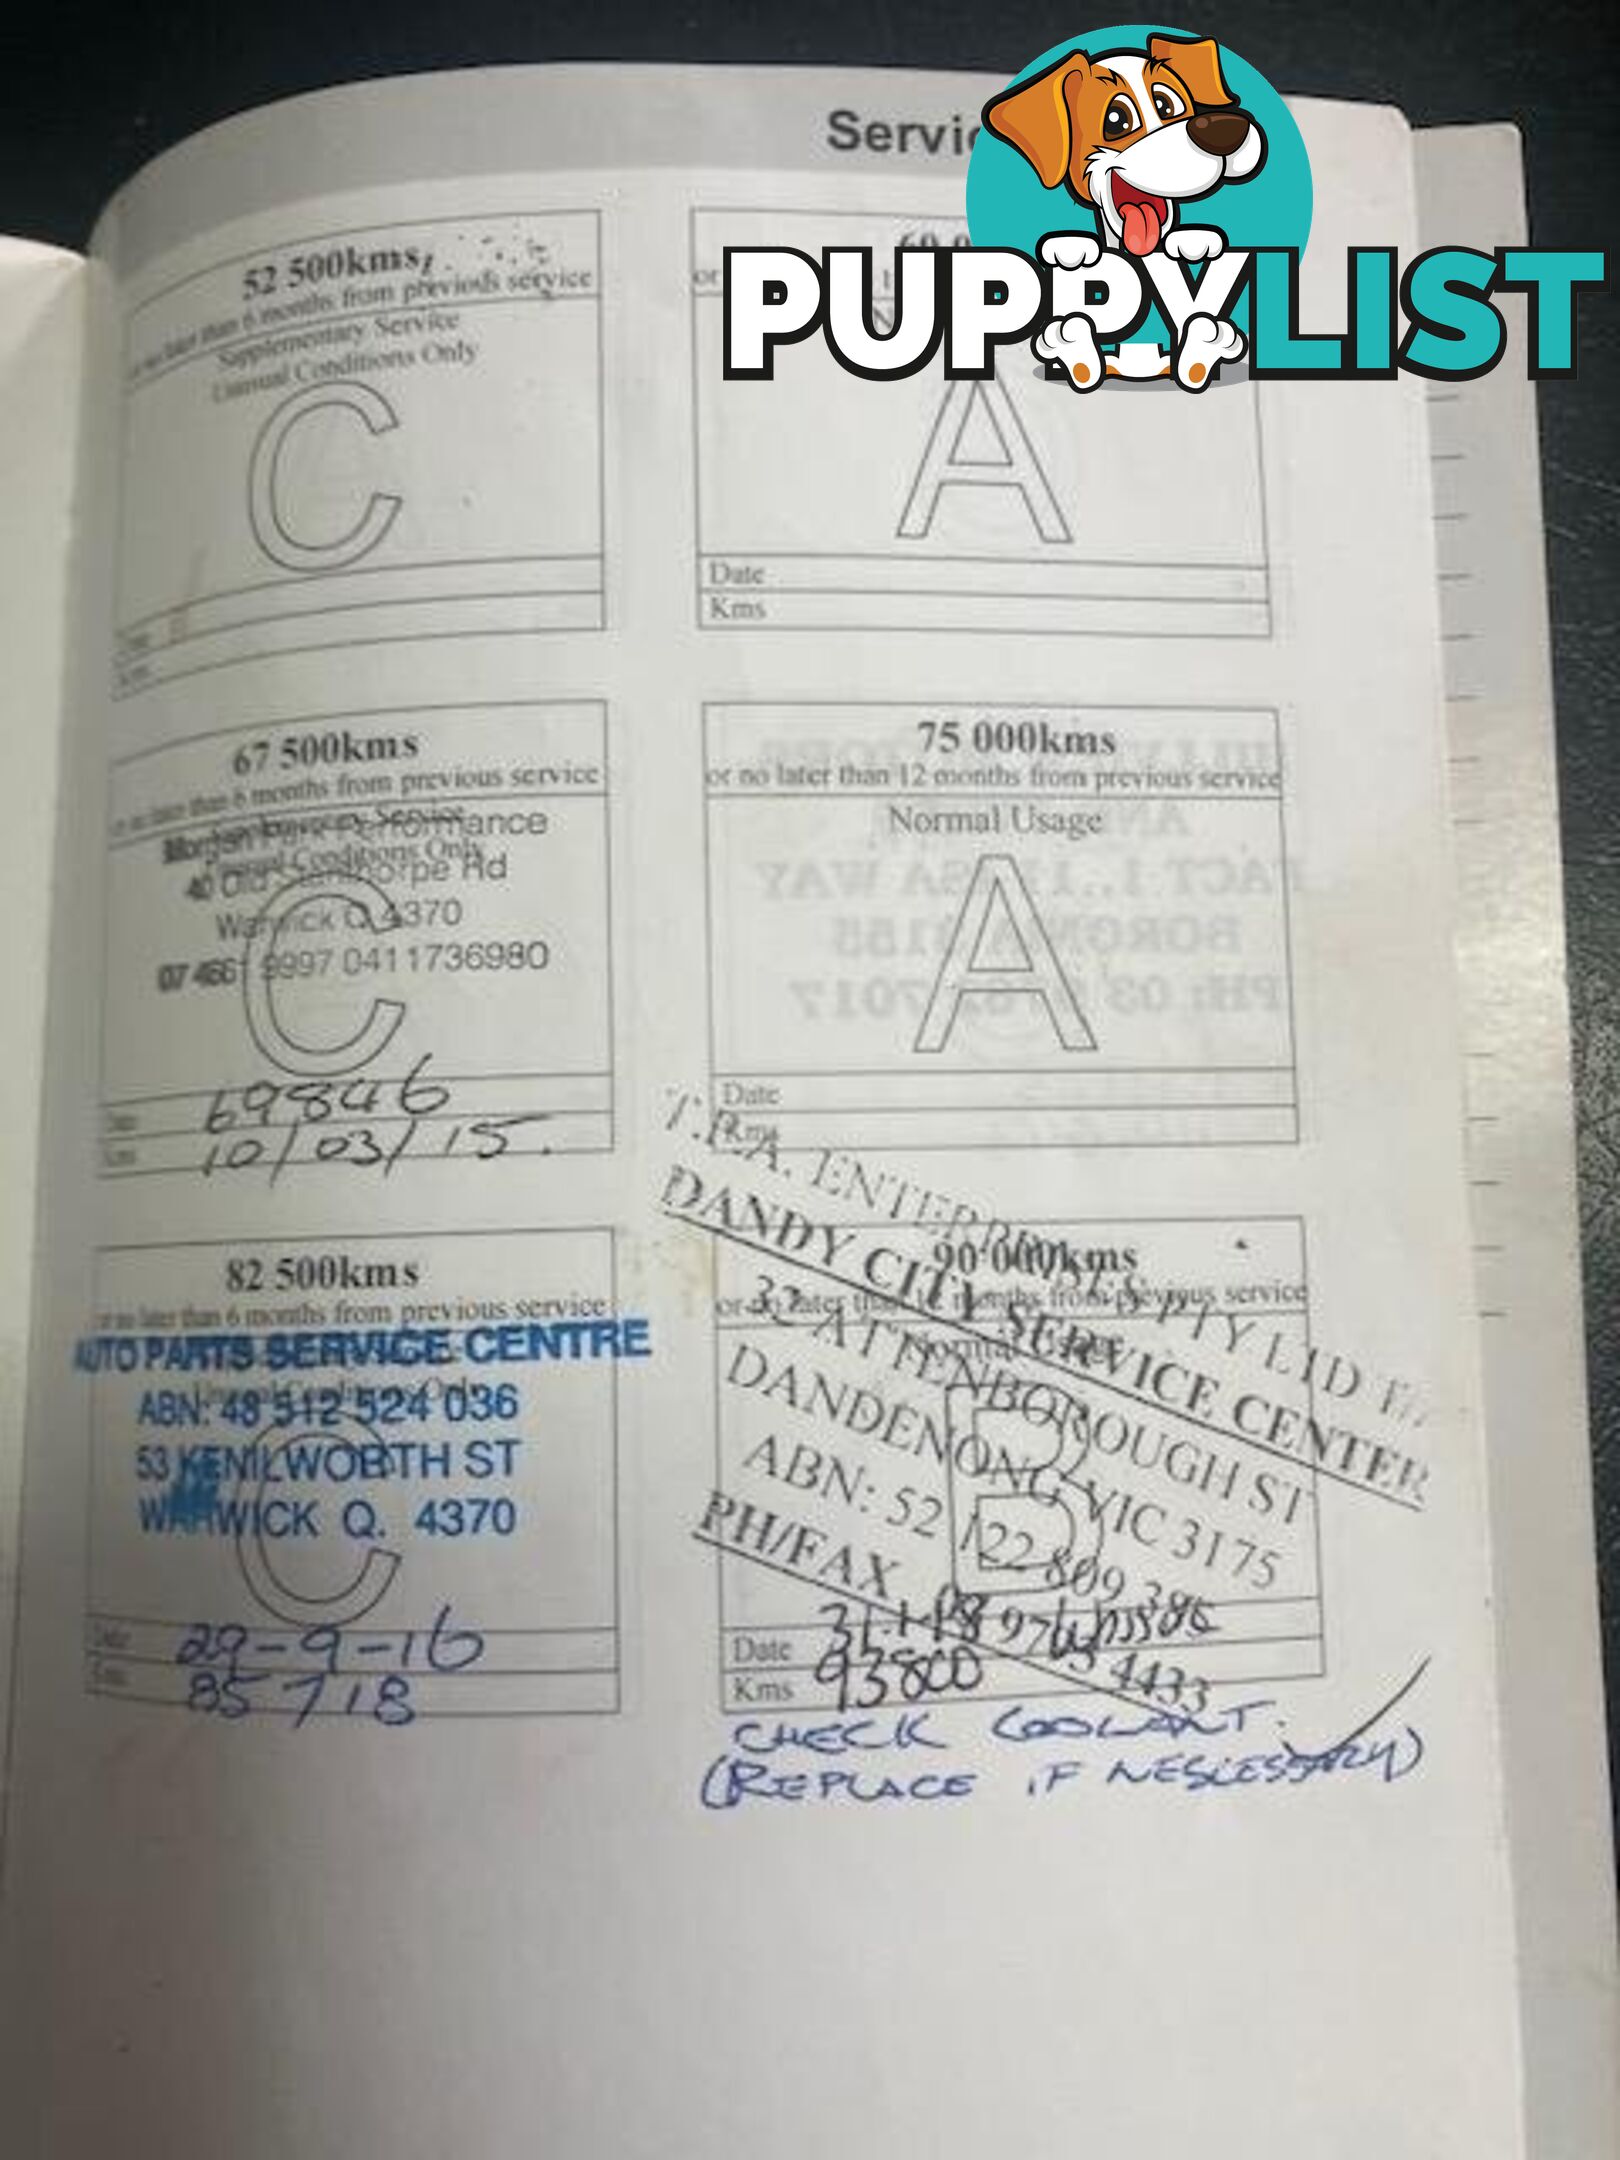 Servic
PUPPYLIST
52 500kms
or no later than 6 months from previous service
Supplementary Service
Unusual Conditions Only
C
60 0
or
A
Date
Kms
67 500kms
or no later than 6 months from previous service
Performance
40 Old Stanthorpe Rd
Warwick Q 4370
07 4661 9997 0411736980
C
69846
10/03/15.
75 000kms
or no later than 12 months from previous service
Normal Usage
A
Date
Kms
82 500kms
or no later than 6 months from previous service
AUTO PARTS SERVICE CENTRE
ABN: 48 512 524 036
53 KENILWORTH ST
WARWICK Q. 4370
C
Date 29-9-16
Kms 85718
90 000kms
or no later than 12 months from previous service
Normal
B
ENTERPRISES PTY LTD
DANDY CITY SERVICE CENTER
32 ATTENBOROUGH ST
DANDENONG VIC 3175
ABN: 52 122 809 386
PH/FAX
4433
Date
Kms 93800
CHECK COOLANT.
(REPLACE IF NESCESSARY)